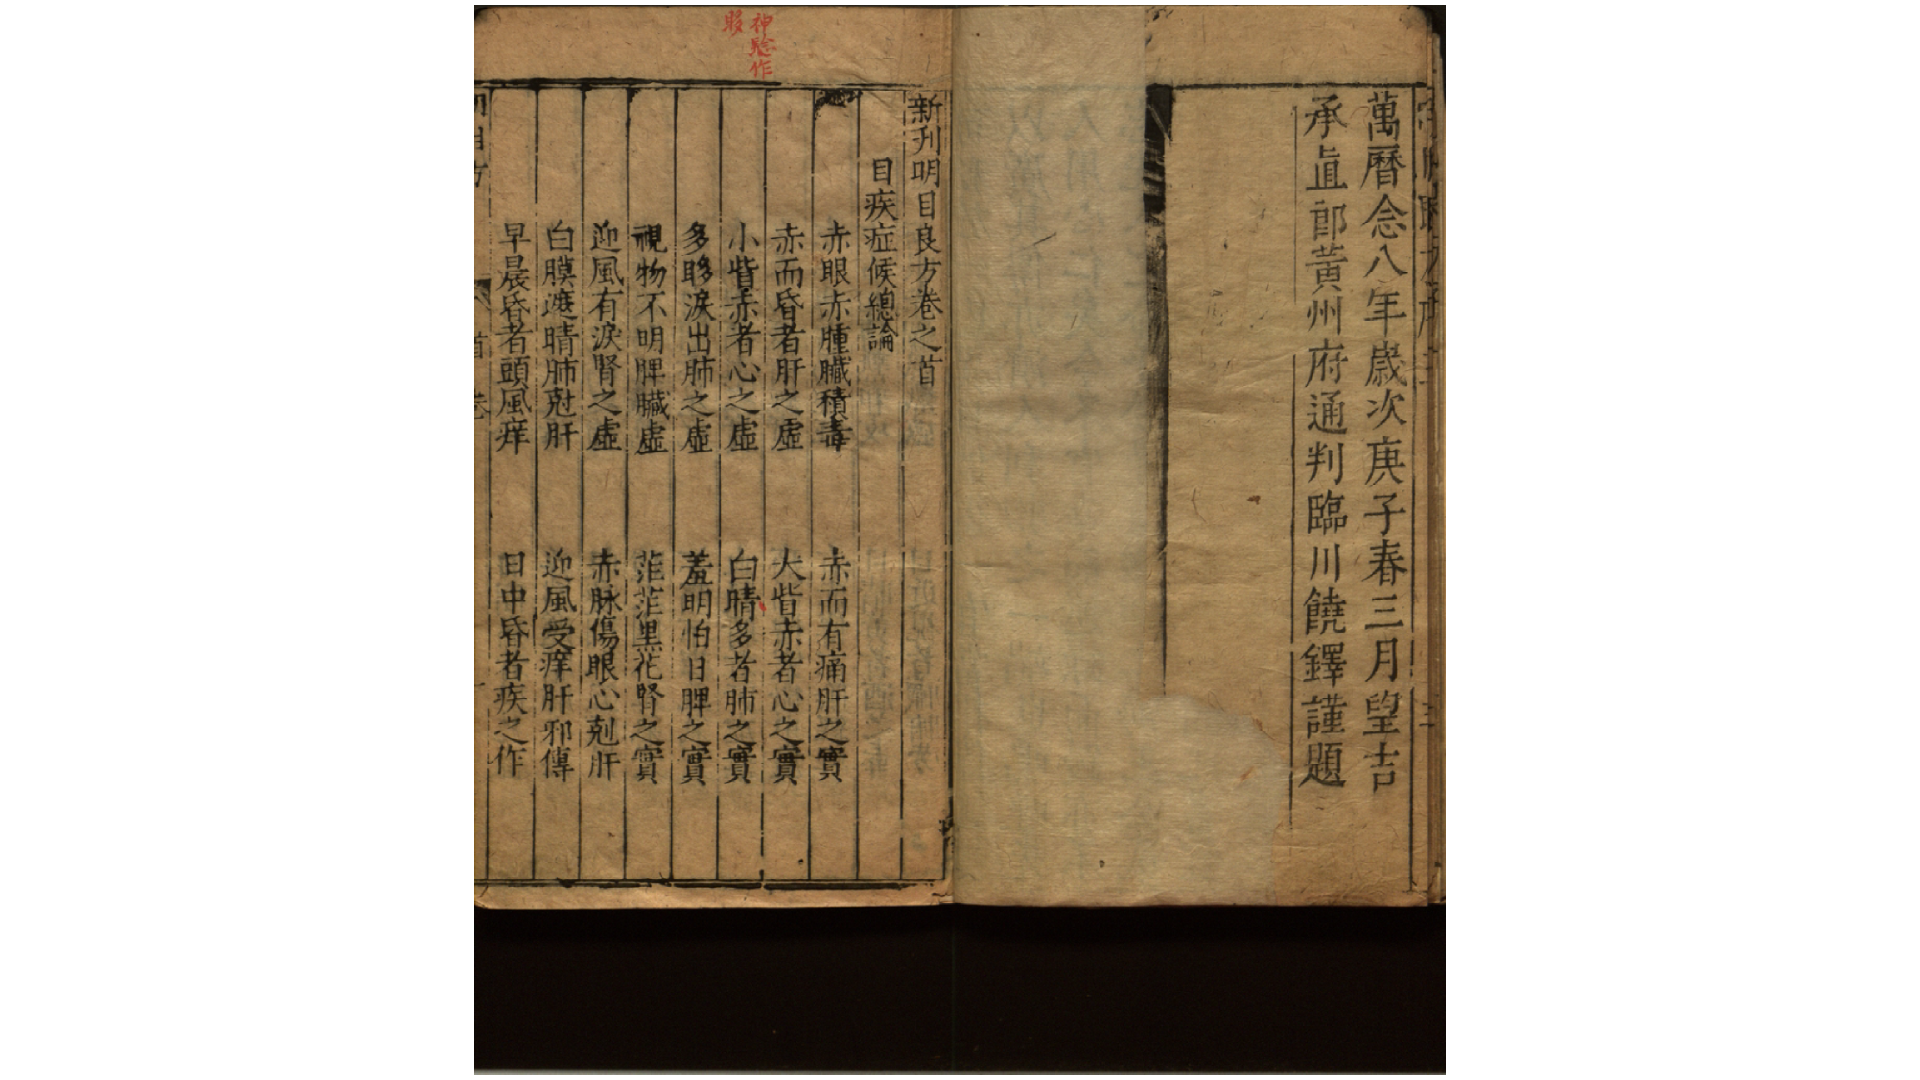 萬曆念八年歲次庚子春三月望吉
承直郎黃州府通判臨川饒鐸謹題
新刋明目良方卷之首
目疾症候總論
赤眼赤腫臟積毒 赤而有痛肝之實
赤而昏者肝之虛 大眥赤者心之實
小眥赤者心之虛 白睛多者肺之實
多眵淚出肺之虛 羞明怕日脾之實
視物不明脾臟虛 茫茫黑花腎之實
迎風有淚腎之虛 赤脉傷眼心剋肝
白膜遮睛肺尅肝 迎風受痒肝邪傳
早晨昏者頭風痒 日中昏者疾之作
神驗作
眵